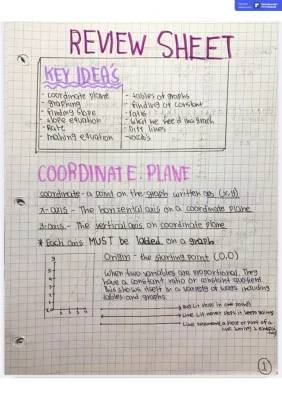 REVIEW SHEET
KEY IDEA'S
- coordinate plane
- graphing
- finding slope
- slope equation
- Rate
- making equation
- tables of graphs
- finding of constant
- Diff lines
- vocab's
COORDINATE PLANE
coordinate - a point on the graph written as (x,y)
x-axis - The horizontal axis on a coordinate plane
y-axis - The vertical axis on coordinate plane
* Each axis MUST be labled on a graph
Origin - the starting point (0,0)
When two variables are proportional. They
have a constant ratio or constant quotient
This shows itself in a variety of ways including
tables and graphs.
1